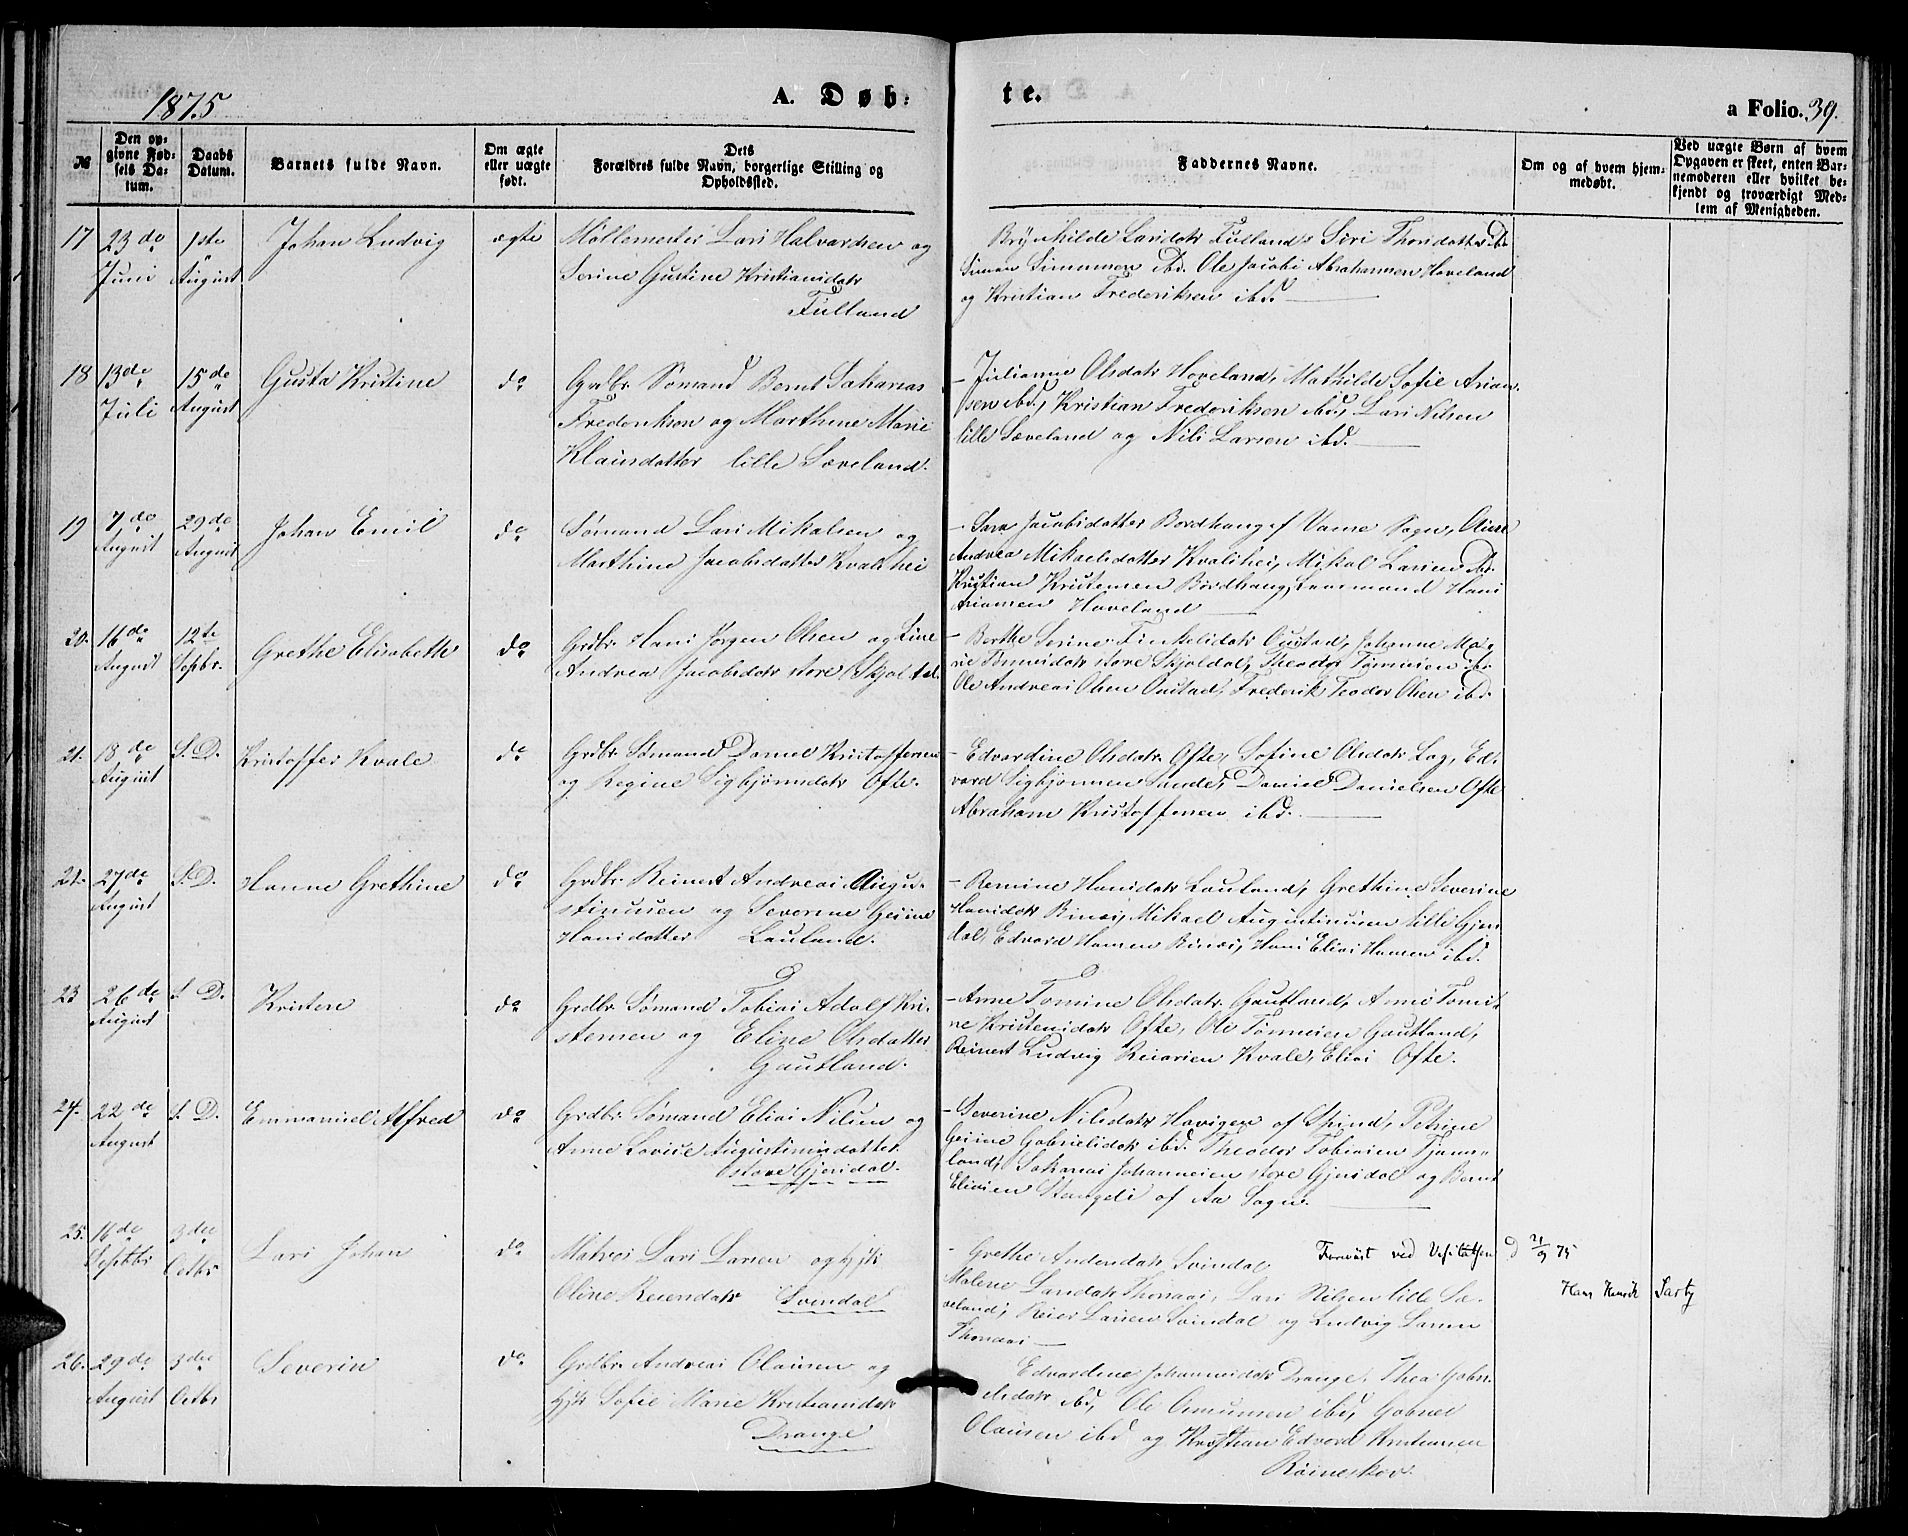 1875
A. Døb:
te.
a Folio. 39.
№
Den op-
givne Fød-
sels Da-
tum.
Daabs
Datum.
Barnets fulde Navn.
Om ægte
eller uægte
født.
Dets
Forældres fulde Navn, borgerlige Stilling og
Opholdssted.
Faddernes Navne.
Om og af hvem hjem-
medøbt.
Ved uægte Børn af hvem
Opgaven er skeet, enten Bar-
nemoderen eller hvilket be-
kjendt og troværdigt Med-
lem af Menigheden.
17
23de
Juni
1ste
August
Johan Ludvig
ægte
Møllemester Lars Halvardsen og
Serine Gustine Kristiansdatr
Fulland
Brynhilde Larsdatr Fulland, Siri Thorsdatter ibd.
Simon Simonsen ibd. Ole Jacobs Abrahamsen Hoveland
og Kristian Frederiksen ibd.
18
13de
Juli
15de
August
Gusta Kristine
do
Grdbr. Sømand Bernt Sakarias
Frederiksen og Marthine Marie
Klausdatter lille Sæveland.
- Julianne Olsdatr Hoveland, Mathilde Sofie Arian-
sen ibd., Kristian Frederiksen ibd., Lars Nilsen
lille Sæveland og Nils Larsen ibd.
19
7de
August
29de
August
Johan Emil
do
Sømand Lars Mikalsen og
Marthine Jacobsdatter Kvalshei
- Sara Jacobsdatter Bordhaug af Vanse Sogn,
Andrea Mikaelsdatter Kvalshei, Mikal Larsen ibd.
Kristian Kristensen Bordhaug, Hans
Ariansen Hoveland
20.
16de
August
12te
Septbr.
Grethe Elisabeth
do
Grdbr. Hans Jørgen Olsen og Line
Andrea Jacobsdatr store Skjoldal.
- Berthe Serine Oustad, Johanne Ma-
rie Tønnesdatr store Skjoldal, Theodor Tønnesen ibd.
Ole Andreas Olsen Oustad, Frederik Teodor Olsen ibd.
21.
18de
August
S. D.
Kristoffer Kvale
do
Grdbr. Sømand Daniel Kristoffersen
og Regine Sigbjørnsdatr Ofte.
- Edvardine Olsdatr Ofte, Sofine Olsdatr Log, Ed-
vard Sigbjørnsen Sande, Daniel Danielsen Ofte
Abraham Kristoffersen ibd.
22.
27de
August
S. D.
Hanne Grethine
do
Grdbr. Reinert Andreas Augu-
stinusen og Severine Gesine
Hansdatter Lauland.
- Remine Hansdatr Lauland, Grethine Severine
Hansdatr Binæs, Mikael Augustinusen lille Gjers-
dal, Edvard Hansen Binæs, Hans Elias Hansen ibd.
23
26de
August
S. D.
Kristen
do
Grdbr. Sømand Tobias Adolf Kri-
stensen og Eline Olsdatter
Gautland.
- Anne Tomine Olsdatr Gautland, Anne Tomi-
ne Kristensdatr Ofte, Ole Tønnesen Gautland,
Reinert Ludvig Reiersen Kvale, Elias Ofte.
24.
22de
August
S. D.
Emmanuel Alfred
do
Grdbr. Sømand Elias Nilsen og
Anne Lovise Augustinusdatter
store Gjersdal.
- Severine Nilsdatr Havigen af Spind, Petrine
Gesine Gabrielsdatr ibd. Theodor Tobiasen Tjøms-
land, Sakarias Johannesen store Gjersdal og Bernt
Eliasen Stangeli af Aa Sogn.
25.
16de
Septbr
3die
Octbr
Lars Johan
do
Matros Lars Larsen og Hst
Oline Reiersdatr Svindal
- Grethe Andersdatr Svindal
Malene Larsdatr Thonaas, Lars Nilsen lille Sæ-
veland, Reier Larsen Svindal og Ludvig Larsen
Thonaas
Forevist ved Visitatsen
d 21/9 75
Hans Henrik
26.
29de
August
3die
Octbr
Severin
do
Grdbr. Andreas Olausen og
Hst Sofie Marie Kristiansdatr
Drange
Edvardine Johannesdatr Drange, Thea Gabri-
elsdatr ibd, Ole Omunsen ibd, Gabriel
Olausen ibd og Kristian Edvard Kristiansen
Røineskor.